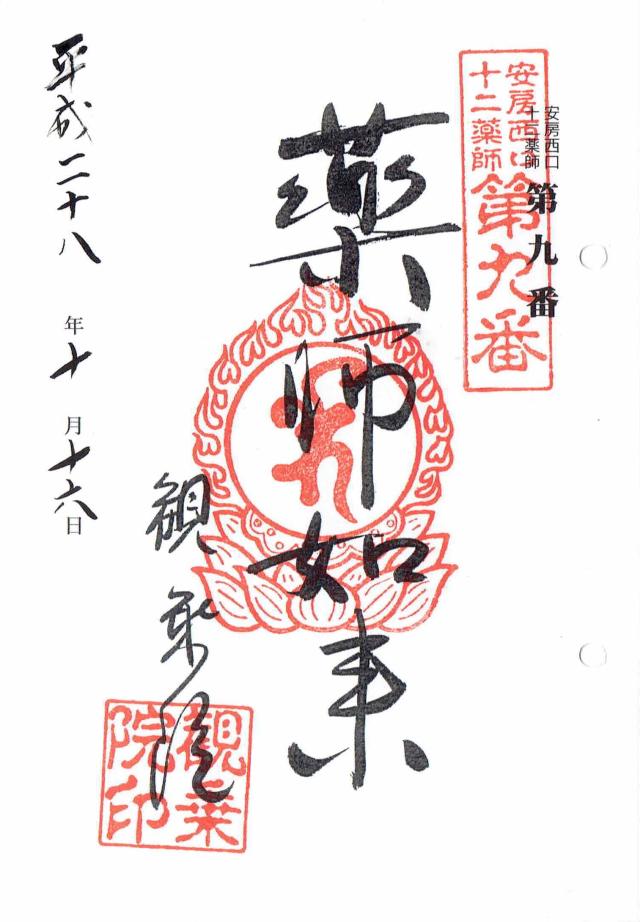 安房西口
十二薬師
第九番
安房西口
十二薬師
第九番
薬師如来
観乗院
観乗
院印
平成二十八年十月十六日